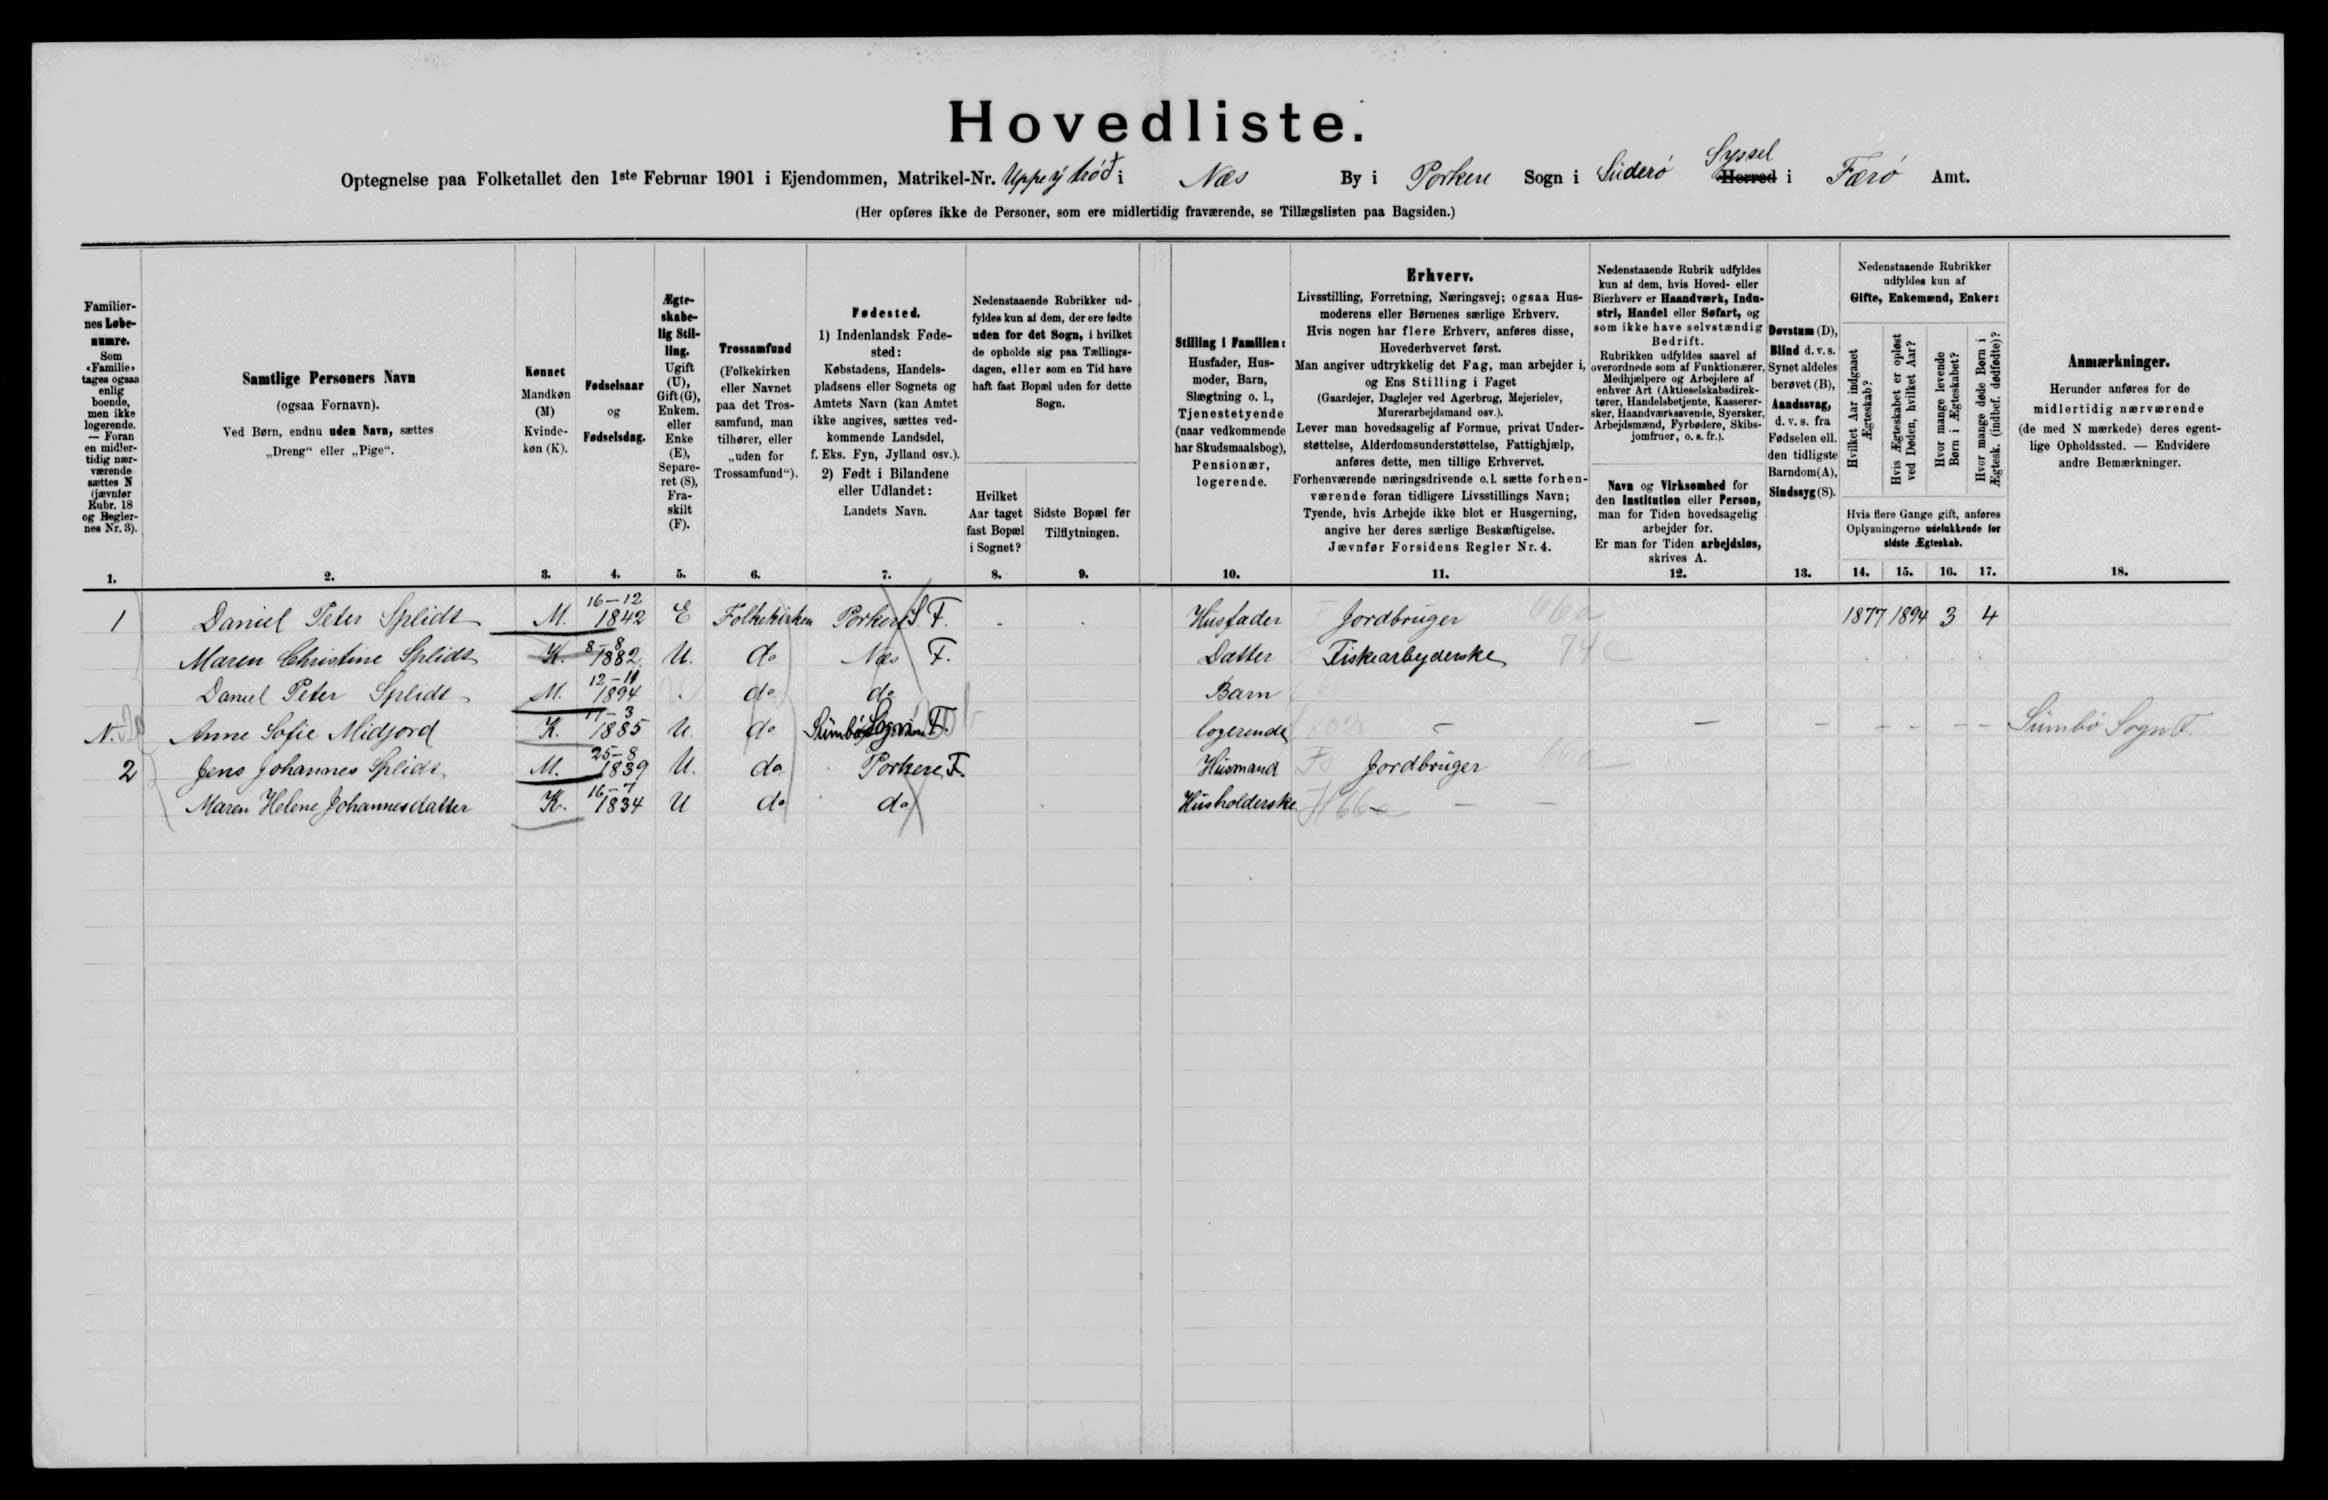 Hovedliste.
Syssel
Optegnelse paa Folketallet den 1ste Februar 1901 i Ejendommen, Matrikel-Nr. Uppe ý tróð i Næs By i Porkere Sogn i Süderø Herred i Færø Amt.
(Her opføres ikke de Personer, som ere midlertidig fraværende, se Tillægslisten paa Bagsiden.)
Familier-
nes Løbe-
numre.
Som
«Familie»
tages ogsaa
enlig
boende,
men ikke
logerende.
— Foran
en midler-
tidig nær-
værende
sættes N
(jævnfør
Rubr. 18
og Regler-
nes Nr. 3).
1.
Samtlige Personers Navn
(ogsaa Fornavn).
Ved Børn, endnu uden Navn, sættes
„Dreng“ eller „Pige“.
2.
Kønnet
Mandkøn
(M)
Kvinde-
køn (K).
3.
Fødselsaar
og
Fødselsdag.
4.
Ægte-
skabe-
lig Stil-
ling.
Ugift
(U),
Gift (G),
Enkem.
eller
Enke
(E),
Separe-
ret (S),
Fra-
skilt
(F).
5.
Trossamfund
(Folkekirken
eller Navnet
paa det Tros-
samfund, man
tilhører, eller
„uden for
Trossamfund“).
6.
Fødested.
1) Indenlandsk Føde-
sted:
Købstadens, Handels-
pladsens eller Sognets og
Amtets Navn (kan Amtet
ikke angives, sættes ved-
kommende Landsdel,
f. Eks. Fyn, Jylland osv.).
2) Født i Bilandene
eller Udlandet:
Landets Navn.
7.
Nedenstaaende Rubrikker ud-
fyldes kun af dem, der ere fødte
uden for det Sogn, i hvilket
de opholde sig paa Tællings-
dagen, eller som en Tid have
haft fast Bopæl uden for dette
Sogn.
Hvilket
Aar taget
fast Bopæl
i Sognet?
8.
Sidste Bopæl før
Tilflytningen.
9.
Stilling i Familien:
Husfader, Hus-
moder, Barn,
Slægtning o. l.,
Tjenestetyende
(naar vedkommende
har Skudsmaalsbog),
Pensionær,
logerende.
10.
Erhverv.
Livsstilling, Forretning, Næringsvej; ogsaa Hus-
moderens eller Børnenes særlige Erhverv.
Hvis nogen har flere Erhverv, anføres disse,
Hovederhvervet først.
Man angiver udtrykkelig det Fag, man arbejder i,
og Ens Stilling i Faget
(Gaardejer, Daglejer ved Agerbrug, Mejerielev,
Murerarbejdsmand osv.).
Lever man hovedsagelig af Formue, privat Under-
støttelse, Alderdomsunderstøttelse, Fattighjælp,
anføres dette, men tillige Erhvervet.
Forhenværende næringsdrivende o. l. sætte forhen-
værende foran tidligere Livsstillings Navn;
Tyende, hvis Arbejde ikke blot er Husgerning,
angive her deres særlige Beskæftigelse.
Jævnfør Forsidens Regler Nr. 4.
11.
Nedenstaaende Rubrik udfyldes
kun af dem, hvis Hoved- eller
Bierhverv er Haandværk, Indu-
stri, Handel eller Søfart, og
som ikke have selvstændig
Bedrift.
Rubrikken udfyldes saavel af
overordnede som af Funktionærer,
Medhjælpere og Arbejdere af
enhver Art (Aktieselskabsdirek-
tører, Handelsbetjente, Kasserer-
sker, Haandværkssvende, Syersker,
Arbejdsmænd, Fyrbødere, Skibs-
jomfruer, o. s. fr.).
Navn og Virksomhed for
den Institution eller Person,
man for Tiden hovedsagelig
arbejder for.
Er man for Tiden arbejdsløs,
skrives A.
12.
Døvstum (D),
Blind d. v. s.
Synet aldeles
berøvet (B),
Aandssvag,
d. v. s. fra
Fødselen ell.
den tidligste
Barndom (A),
Sindssyg (S).
13.
Nedenstaaende Rubrikker
udfyldes kun af
Gifte, Enkemænd, Enker:
Hvilket Aar indgaaet
Ægteskab?
Hvis Ægteskabet er opløst
ved Døden, hvilket Aar?
Hvor mange levende
Børn i Ægteskabet?
Hvor mange døde Børn i
Ægtesk. (indbef. dødfødte)?
Hvis flere Gange gift, anføres
Oplysningerne udelukkende for
sidste Ægteskab.
14. 15. 16. 17.
Anmærkninger.
Herunder anføres for de
midlertidig nærværende
(de med N mærkede) deres egent-
lige Opholdssted. — Endvidere
andre Bemærkninger.
18.
1 Daniel Peter Splidt M. 16-12 1842 E Folkekirken Porkere S F. Husfader Jordbrüger 66a 1877 1894 3 4
Maren Christine Splidt K. 8-8 1882 U. do Næs F. Datter Fiskearbejderske 74c
Daniel Peter Splidt M. 12-11 1894 do do Barn
N. Anne Sofie Midjord K. 11-3 1885 U do Sümbø Sogn F. logerende - - - - - - - Sümbø Sogn F.
2 Jens Johannes Splidt M. 25-8 1839 U. do Porkere F. Hüsmand Jordbrüger
Maren Helene Johannesdatter K. 16-7 1834 U do do Hüsholderske H 66a - -